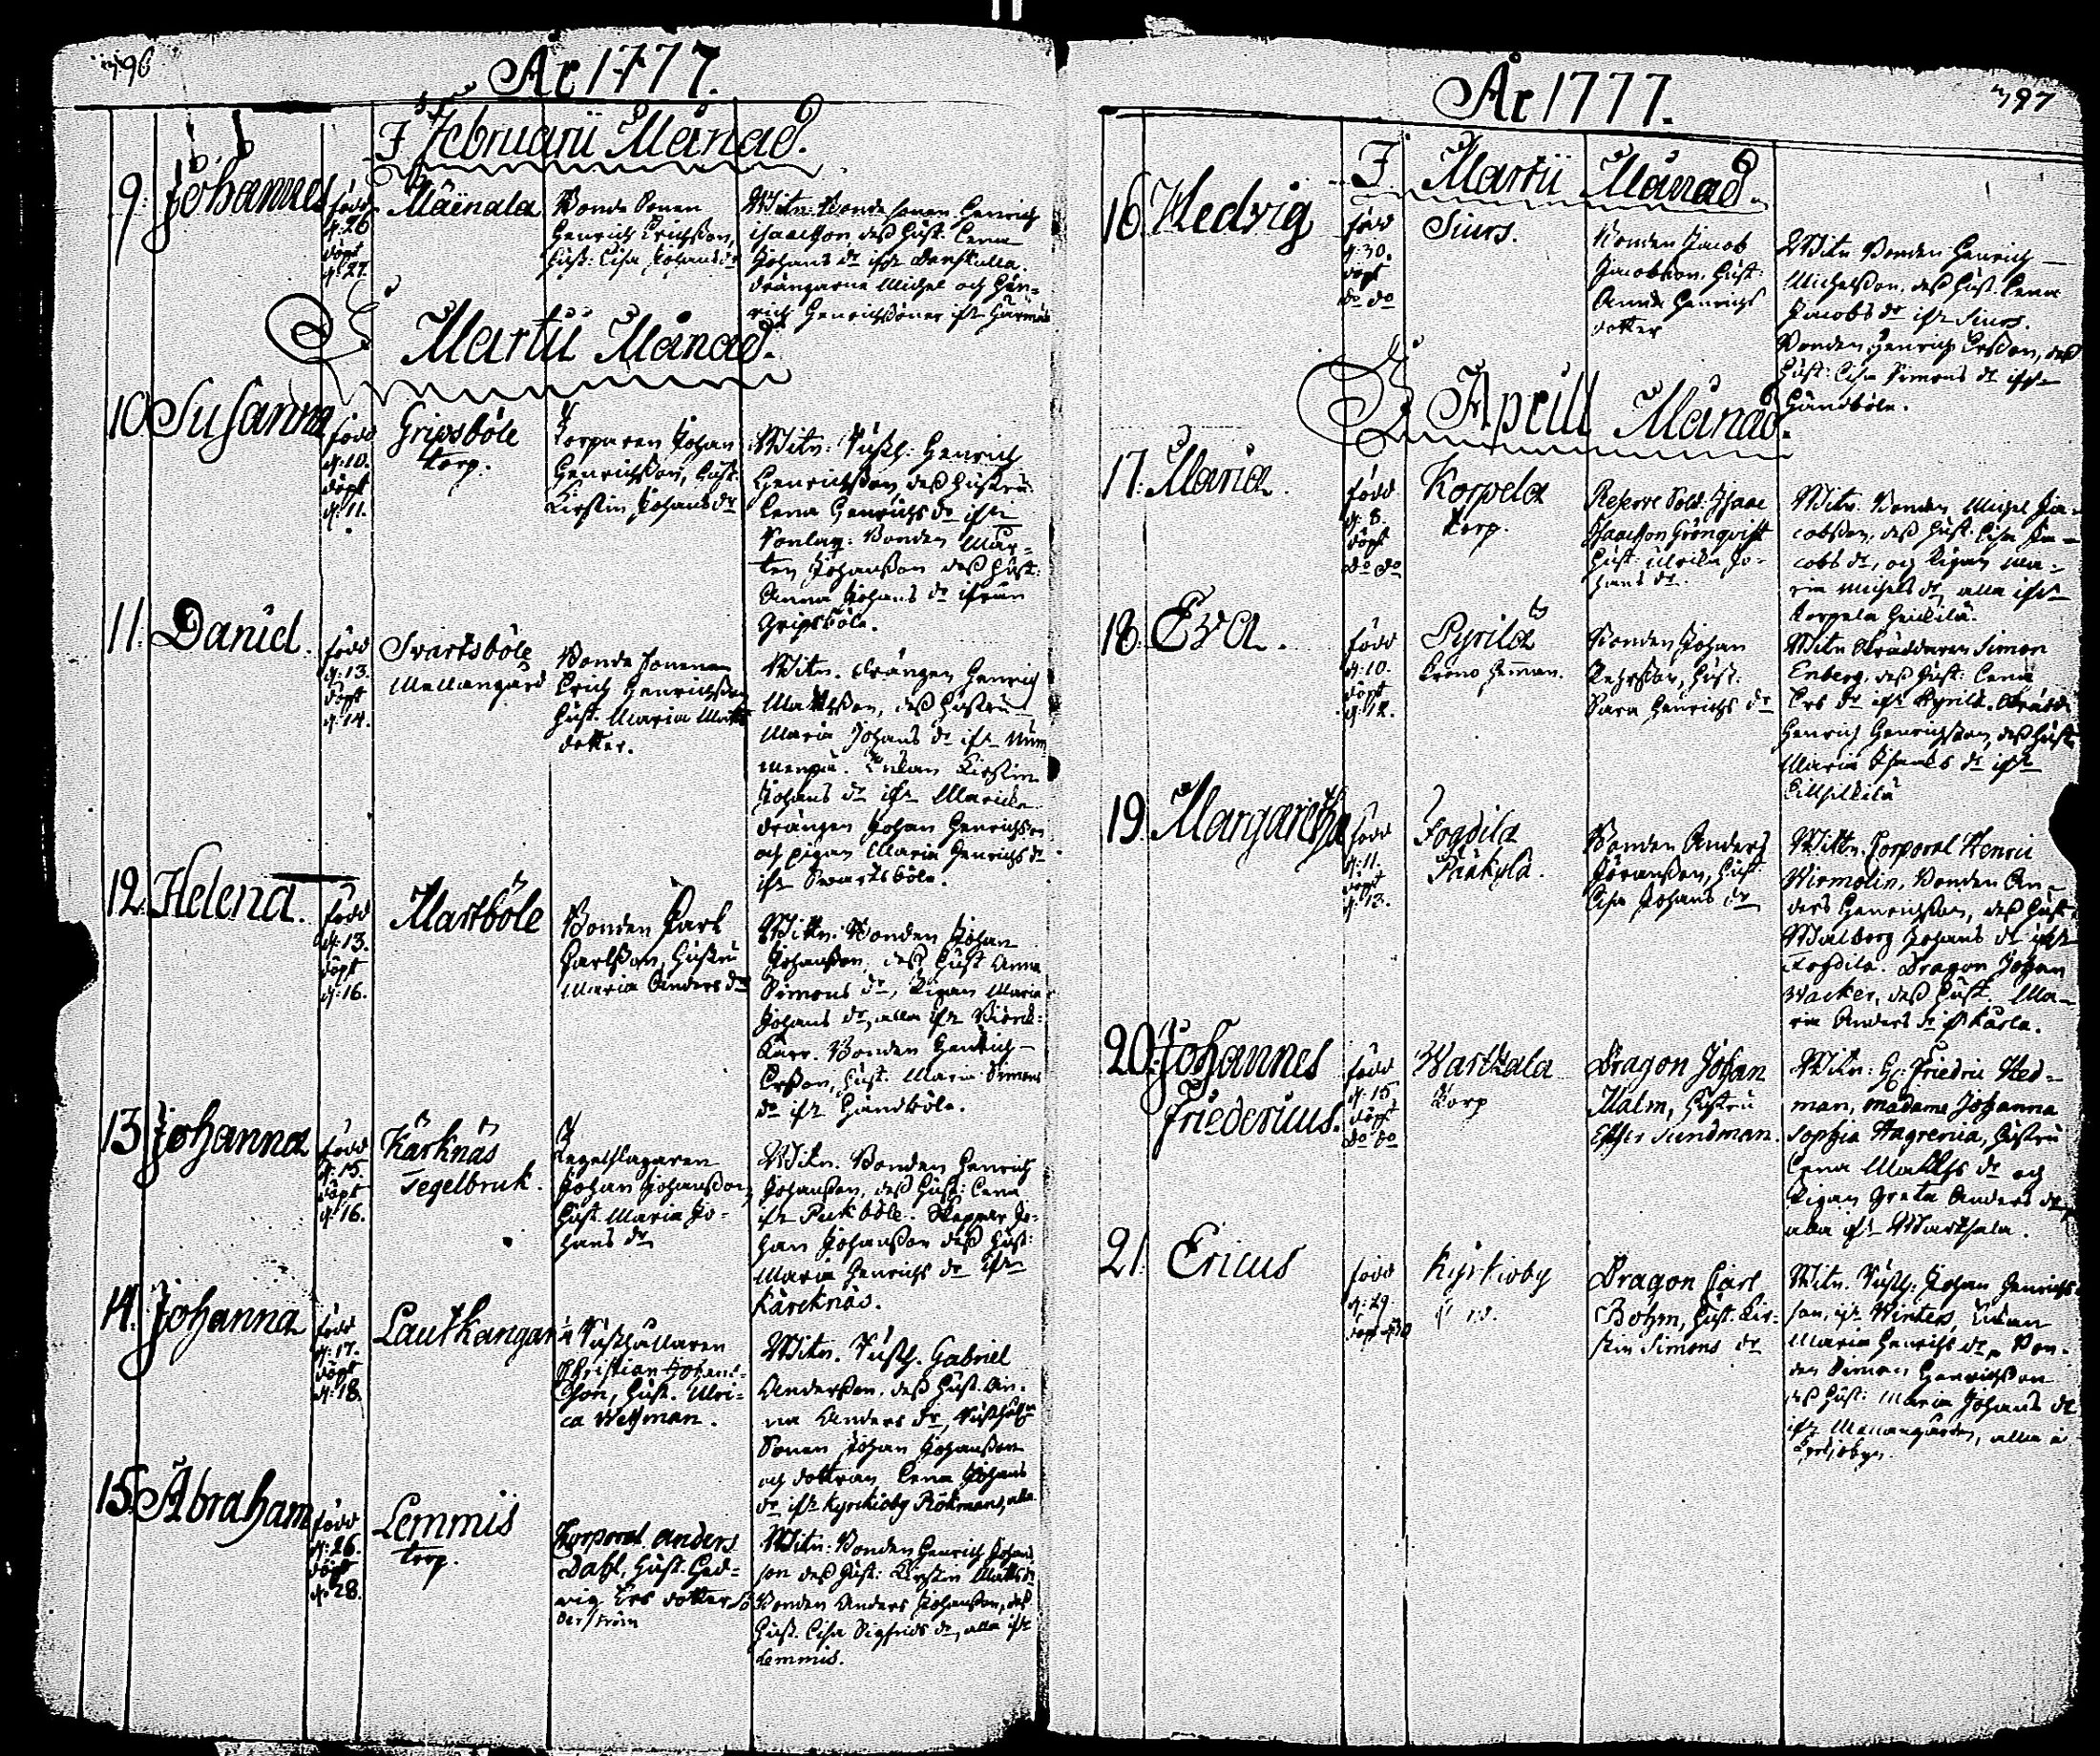 96
År 1777.
I Februarii Månad.
9. Johannes
född
d: 26
döpt
d: 27.
Mäinala
Bonde Sonen
Henrich Erichsson,
Hust: Lisa Johans dr
Witn: Bonde sonen Henrich
Isaacsson, dess Hust. Lena
Johans dr ifr
drängarne Michel och Hen-
rich Henrichssöner ifr
I Martii Månad.
10 Susanna
född
d: 10.
döpt
d: 11.
Gripsböle
torp.
Torparen Johan
Henrichsson, Hust:
Kirstin Johans dr
Witn: Rusth: Henrich
Henrichsson, dess Hustru
Lena Henrichs dr ifr
Bonden Mår-
ten Johansson dess Hust:
Anna Johans dr ifrån
Gripsböle.
11: Daniel.
född
d: 13.
döpt
d: 14.
Svartsböle
Mellangård
Bonde sonen
Erich Henrichsson
Hust. Maria Matts
dotter.
Witn. drängen Henrich
Mattsson, dess Hustru
Maria Johans dr ifr Num
menpä. Enkan Kirstin
Johans dr ifr
drängen Johan Henrichsson
och pigan Maria Henrichs dr
ifr Svartsböle.
12. Helena.
född
d: 13.
döpt
d: 16.
Martböle
Bonden Carl
Carlsson, Hustru
Maria Anders dr
Witn: Bonden Johan
Johansson, dess Hust Anna
Simons dr, Pigan Maria
Johans dr, alla ifr
Kärr. Bonden Henrich
Ersson, Hust. Maria Simons
dr ifr Gändböle.
13 Johanna
född
d: 15.
döpt
d: 16.
Kärknäs
Tegelbruk.
Tegelslagaren
Johan Johansson,
Hust. Maria Jo-
hans dr
Witn. Bonden Henrich
Johansson, dess Hust: Lena
ifr Pukböle. Skeppar Jo-
han Johansson dess Hust:
Maria Henrichs dr ifr
Kärcknäs.
14. Johanna
född
d: 17.
döpt
d: 18.
Lautkangar
Rusthållaren
Christian Johans-
son, Hust. Ulri-
ca Wetman.
Witn. Rusth. Gabriel
Andersson, dess Hust. An-
na Anders dr,
Sonen Johan Johansson
och dottran Lena Johans
dr ifr Kyrckioby
15. Abraham
född
d: 26.
döpt
d: 28.
Lemmis
torp.
Korporal Anders
Dahl, Hust. Hed-
vig Ers dotter Sö
derström
Witn: Bonden Henrich Johans
son dess Hust: Kirstin Matts dr
Bonden Anders Johansson, dess
Hust. Lisa Sigfrids dr, alla ifr
Lemmis.
97
År 1777.
I Martii Månad.
16. Hedvig
född
d: 30.
döpt
do do
Siurs.
Bonden Jacob
Jacobsson, Hust:
Anna Henrichs
dotter
Witn: Bonden Henrich
Michelsson, dess Hust. Lena
Jacobs dr ifr Siurs.
Bonden Henrich Ersson, dess
Hust: Lisa Simons dr ifr
Gändböle.
I Aprill Månad.
17. Maria.
född
d: 8.
döpt
do do
Korpela
torp.
Reserve Sold: Isaac
Isaacsson Grönqvist
Hust: Ulrika Jo-
hans dr.
Witn. Bonden Michel Ja-
cobsson, dess Hust. Lisa Ja-
cobs dr, och Pigan Ma-
ria Michels dr, alla ifr
Korpela
18. Eva.
född
d: 10.
döpt
d: 12.
Pyrilä
Krono Heman.
Bonden Johan
Hust:
Sara Henrichs dr
Witn Skräddaren Simon
Enberg, dess Hust: Lena
Ers dr ifr Pyrilä.
Henrich Henrichsson, dess Hust:
Maria Isaacs dr ifr
19. Margaretha
född
d: 11.
döpt
d: 13.
Fogdila
Bonden Anders
Göransson, Hust.
Lisa Johans dr
Witn. Corporal Henric
Wirmolin, Bonden An-
ders Henrichsson, dess Hust:
Walborg Johans dr ifr
Fogdila. Dragon Johan
Wacker, dess Hust. Ma-
ria Anders dr if Karla.
20. Johannes
Friedericus.
född
d: 15
döpt
do do
Warkala
Torp
Dragon Johan
Malm, Hustru
Esther Sundman.
Witn: Hr: Friedric Hed-
man, Madame Johanna
Sophia Hagrenia, Hustru
Lena Matths dr och
Pigan Greta Anders dr
alla ifr Warkala.
21. Ericus
född
d: 29.
döpt d 30
Kyrkioby
Dragon Carl
Bohm, Hust. Kir-
stin Simons dr
Witn. Rusth: Johan Henrichs-
son, ifr Winters, Enkan
Maria Henrichs dr, Bon-
den Simon Henrichsson
dess Hust: Maria Johans dr
ifr Mellangården, alla i
Kyrkjobyn.